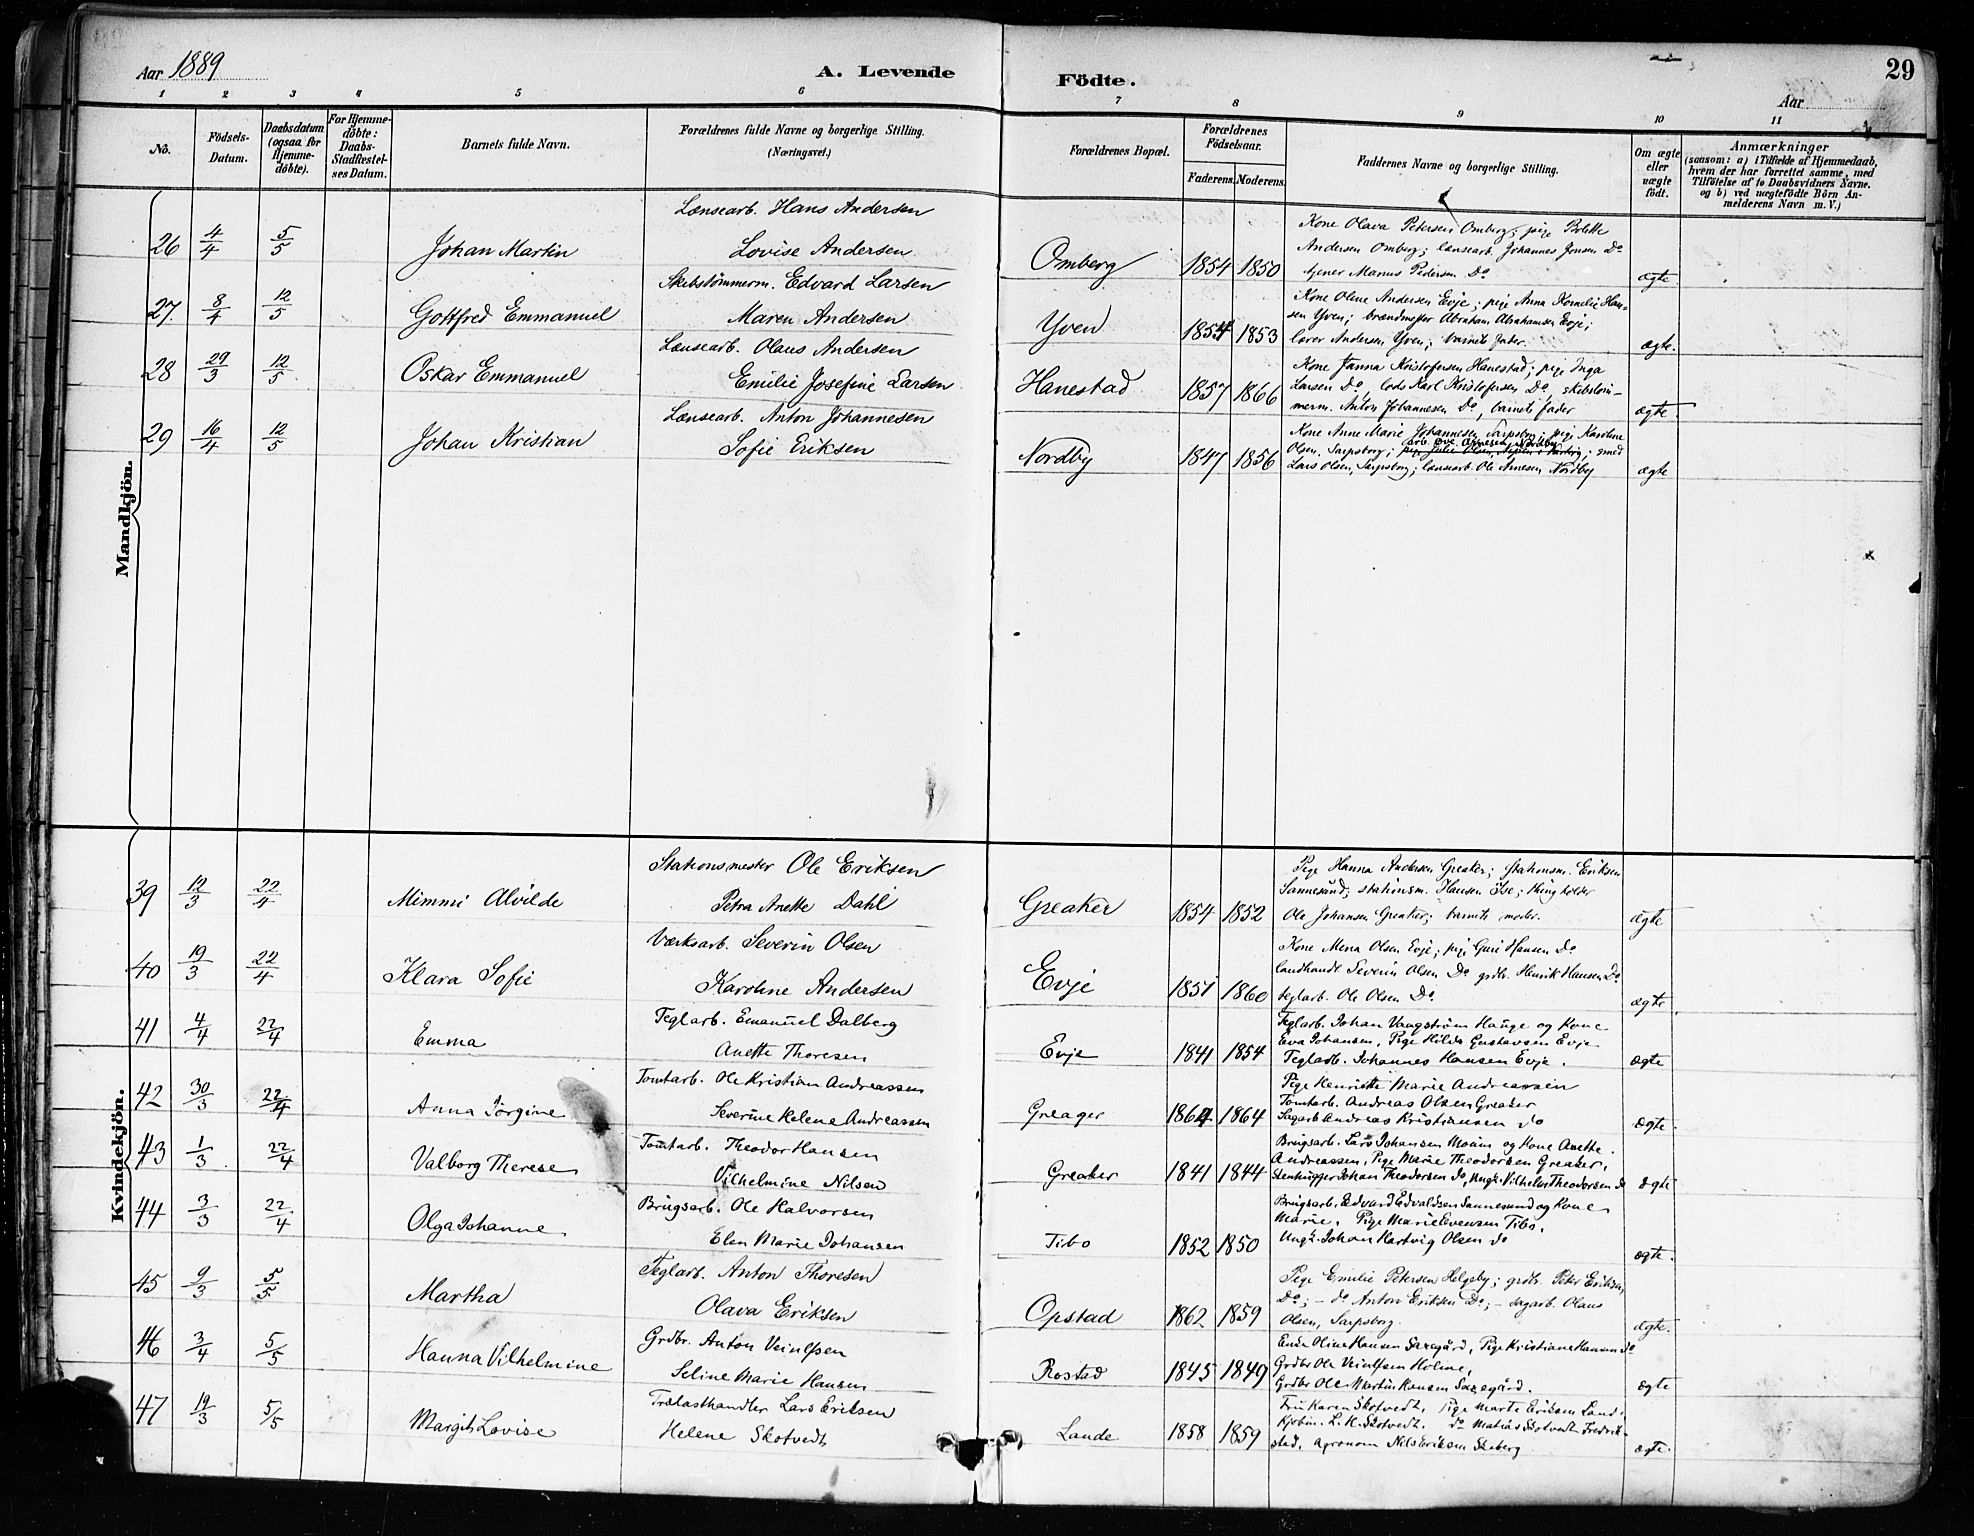 Aar 1889
A. Levende
Födte.
29
Aar
1 2 3 4 5 6 7 8 9 10 11
No.
Födsels-Datum.
Daabsdatum (ogsaa for Hjemme-døbte).
For Hjemme-døbte: Daabs-Stadfæstelses Datum.
Barnets fulde Navn.
Forældrenes fulde Navne og borgerlige Stilling.
(Næringsvei.)
Forældrenes Bopæl.
Forældrenes Födselsaar.
Faderens. Moderens.
Faddernes Navne og borgerlige Stilling.
Om ægte eller uægte født.
Anmærkninger
(saasom: a) i Tilfælde af Hjemmedaab,
hvem der har forrettet samme, med
Tilföielse af to Daabsvidners Navne.
og b) ved uægtefödte Börn An-
melderens Navn m. V.)
Mandkjön.
26 4/4 5/5 Johan Martin
Lænsearb. Hans Andersen
Lovise Andersen
Omberg 1854 1850
Kone Olava Petersen Omberg; pige Bolette
Andersen Omberg; lænsearb. Johannes Jensen Do
tjener Marius Pedersen Do
ægte.
27. 8/4 12/5 Gottfred Emmanuel
Skibstömmerm. Edvard Larsen
Maren Andersen
Yven 1854 1853
Kone Oline Andersen Evje; pige Anna Kornelie Han-
sen Yven; brændmester Abraham Abrahamsen Evje;
Andersen Yven; barnets fader.
ægte.
28 29/3 12/5 Oskar Emmanuel
Lænsearb. Olaus Andersen
Emilie Josefine Larsen
Hanestad 1857 1866
Kone Janna Kristofersen Hanestad; pige Inga
Larsen Do, lods Karl Kristofersen Do, skibstöm-
merm. Anton Johannesen Do, barnets fader
ægte.
29 16/4 12/5 Johan Kristian
Lænsearb. Anton Johannesen
Sofie Eriksen
Nordby 1847 1856
Kone Anne Marie Johannesen Sarpsborg; pige Karoline
Olsen, Sarpsborg; smed
Lars Olsen, Sarpsborg; lænsearb. Ole Arnesen Nordby
ægte
Kvindekjön.
39 12/3 22/4 Mimmi Alvilde
Stationsmester Ole Eriksen
Petra Anette Dahl
Greaker 1854 1852
Pige Hanna Andersen Greaker; stationsm. Eriksen
Sannesund; stationsm. Hansen Ise;
Ole Johansen Greaker; barnets moder.
ægte
40 19/3 22/4 Klara Sofie
Værksarb. Severin Olsen
Karoline Andersen
Evje 1851 1860
Kone Mena Olsen Evje; pige Guri Hansen Do
landhandl. Severin Olsen Do grdbr. Henrik Hansen Do
teglarb. Ole Olsen Do
ægte
41 4/4 22/4 Emma
Teglarb. Emanuel Dalberg
Anette Thoresen
Evje 1841 1854
Teglarb. Johan Vaagström Hauge og Kone
Eva Johansen, Pige Hilda Gustavsen Evje
Teglarb. Johannes Hansen Evje.
ægte
42 30/3 22/4 Anna Jörgine
Tomtarb. Ole Kristian Andreassen
Severine Helene Andreassen
Greager 1864 1864
Pige Henriette Marie Andreassen
Tomtarb. Andreas Olsen Greaker
Sagarb Andreas Kristiansen do
ægte.
43 1/3 22/4 Valborg Therese
Tomtarb. Theodor Hansen
Vilhelmine Nilsen
Greaker 1841 1844
Brugsarb. Lars Johansen Moum og Kone Anette.
Andreassen, Pige Marie Theodorsen Greaker,
Stenhugger Johan Theodorsen do, Ungk. Vilhelm Theodorsen do
ægte
44 3/3 22/4 Olga Johanne
Brugsarb. Ole Halvorsen
Elen Marie Johansen
Tibo 1852 1850
Brugsarb. Edvard Edvaldsen Sannesund og Kone
Marie. Pige Marie Evensen Tibo.
Ungk. Johan Hartvig Olsen do
ægte.
45 9/3 5/5 Martha
Teglarb. Anton Thoresen
Olava Eriksen
Opstad 1862 1859
Pige Emilie Petersen Helgeby; grdb. Peter Eriksen,
Do; – do Anton Eriksen Do; – sagarb. Olaus
Olsen, Sarpsborg.
ægte.
46 3/4 5/5 Hanna Vilhelmine
Grdbr. Anton Veinulfsen
Seline Marie Hansen
Rostad 1845 1849
Enke Oline Hansen Saxegård, Pige Kristiane Hansen do
Grdbr Ole Veinulfsen Holme,
Grdbr Ole Martin Hansen Saxegård.
ægte
47 19/3 5/5 Margit Lovise
Trælasthandler Lars Eriksen
Helene Skotvedt
Lande 1858 1859
Fru Karen Skotvedt, pige Marte Eriksen Lande
Kjøbm. L. K. Skotvedt. do Matias Skotvedt Fredrik-
stad, Agronom Nils Eriksen Skeberg
ægte.